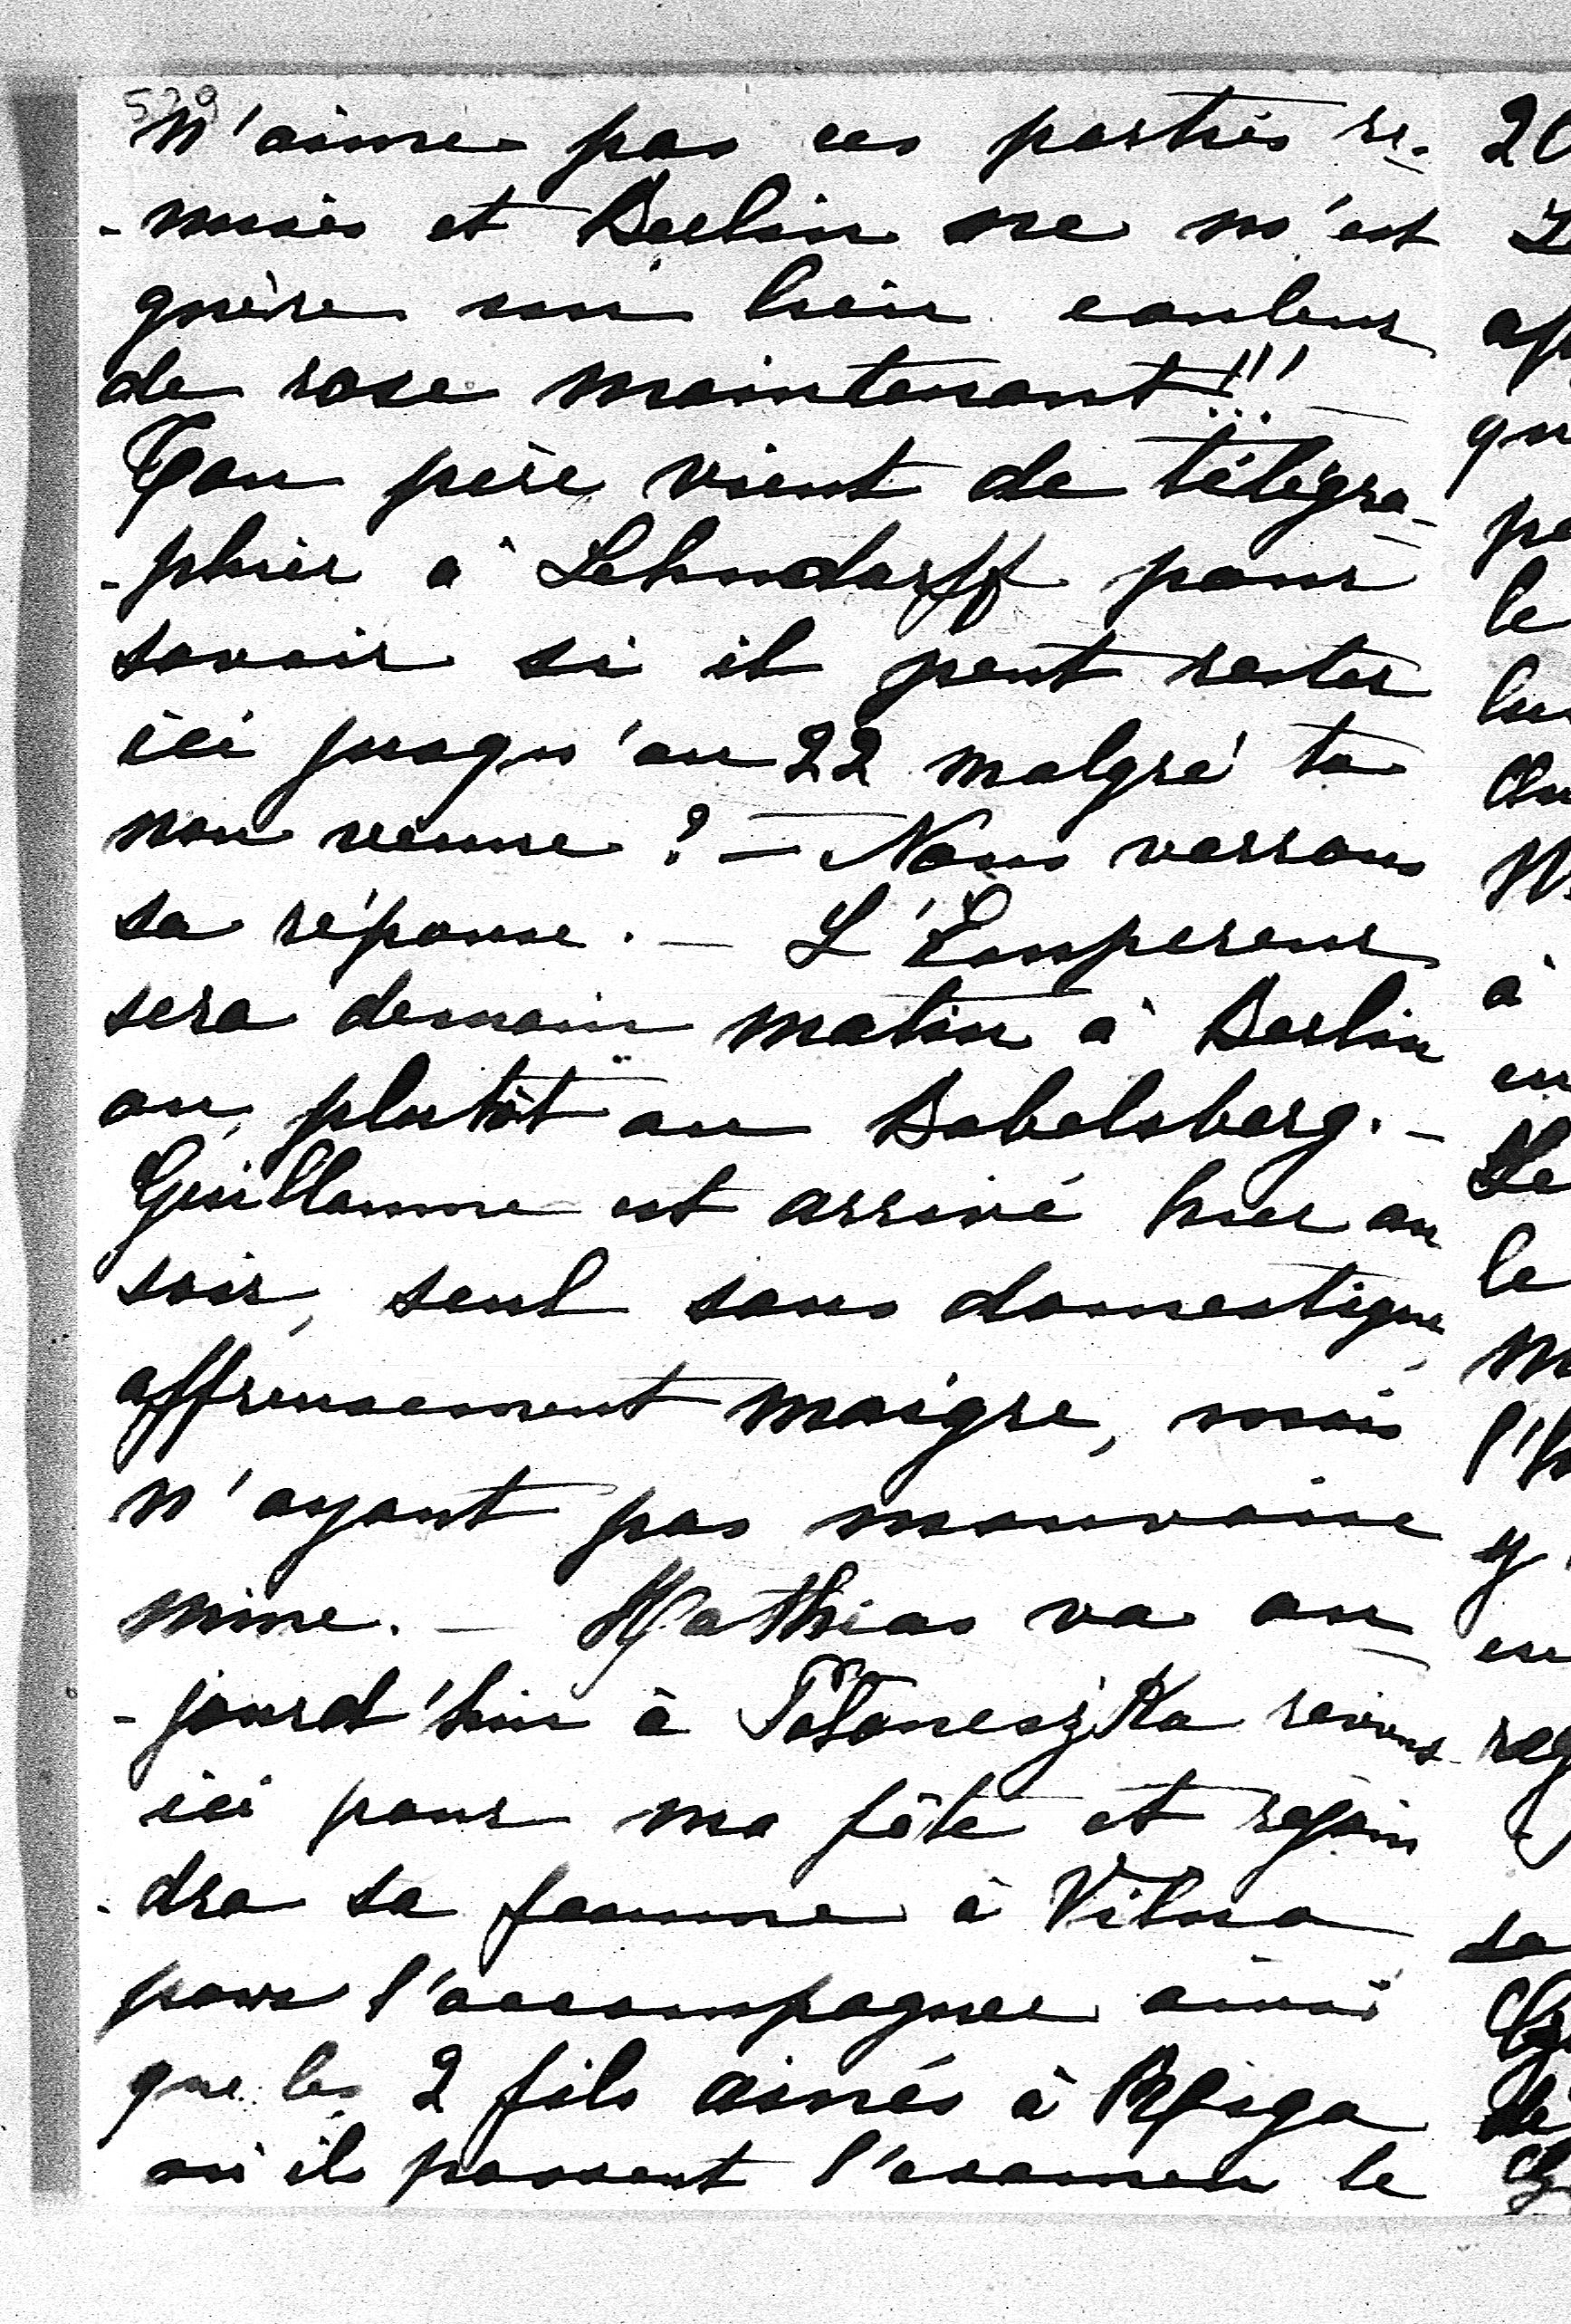 529
n'aime pas ces parties re-
-mises et Berlin ne m'est
guère un lieu couleur
de rose maintenant!!! —
Ton père vient de télégra-
-phier à Lehndorff pour
savoir si il peut rester
ici jusqu'au 22 malgré ta
non venue? — Nous verrons
sa réponse. — L'Empereur
sera demain matin à Berlin
ou plutôt au Babelsberg. —
Guillaume est arrivé hier au
soir, seul sans domestique,
affreusement maigre, mais
n'ayant pas mauvaise
mine. — Mathias va au-
-jourd'hui à revient
ici pour ma fête et rejoin
-dra sa femme à Vilna
pour l'accompagner ainsi
que les 2 fils ainés à Riga
où ils passent l'examen le